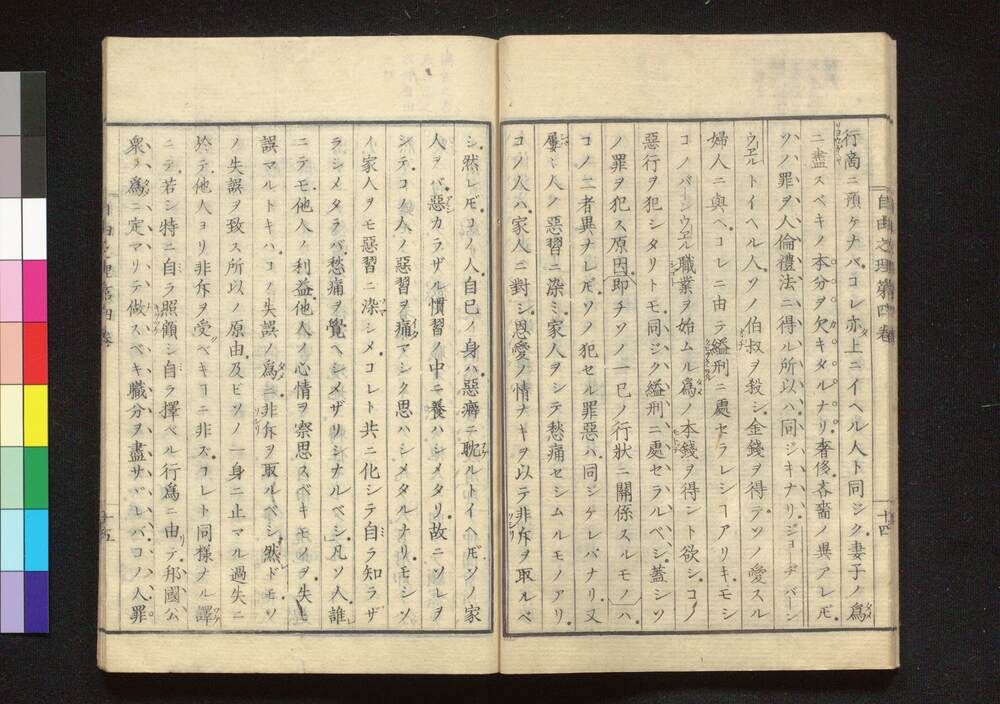 自由之理第四卷
十四
行商ニ預ケナバ、コレ亦上ニイヘル人ト同ジク、妻子ノ爲
ニ盡スベキノ本分ヲ欠キタルナリ、奢侈吝嗇ノ異アレドモ、
ソノ罪ヲ人倫禮法ニ得ル所以ハ同ジキナリ、ジョーヂバーン
ウエルトイヘル人、ソノ伯叔ヲ殺シ、金錢ヲ得テ、ソノ愛スル
婦人ニ與ヘ、コレニ由テ縊刑ニ處セラレシコアリキ、モシ
コノバーンウエル、職業ヲ始ムル爲ノ本錢ヲ得ント欲シ、コノ
惡行ヲ犯シタリトモ、同ジク縊刑ニ處セラルベシ、蓋シソ
ノ罪ヲ犯ス原因、即チソノ一己ノ行狀ニ關係スルモノハ、
コノ二者異ナレドモ、ソノ犯セル罪惡ハ同ジケレバナリ、又
屢〻人ノ惡習ニ染ミ、家人ヲシテ愁痛セシムルモノアリ、
コノ人ハ、家人ニ對シ、恩愛ノ情ナキヲ以テ、非斥ヲ取ルベ
シ、然レドモ、コノ人、自己ノ身ハ惡癖ニ耽ルトイヘドモ、ソノ家
人ヲバ、惡カラザル慣習ノ中ニ養ハシメタリ、故ニソレヲ
シテ、コノ人ノ惡習ヲ痛マシク思ハシメタルナリ、モシソ
ノ家人ヲモ惡習ニ染シメ、コレト共ニ化シテ自ラ知ラザ
ラシメタラバ、愁痛ヲ覺ヘシメザリシナルベシ、凡ソ人誰
ニテモ、他人ノ利益、他人ノ心情ヲ察思スベキモノヲ、失
誤マルトキハ、コノ失誤ノ爲ニ非斥ヲ取ルベシ、然ドモソ
ノ失誤ヲ致ス所以ノ原由、及ビソノ一身ニ止マル過失ニ
於テ、他人ヨリ非斥ヲ受ベキコニ非ズ、コレト同樣ナル譯
ニテ、若シ特ニ自ラ照顧シ自ラ擇ベル行爲ニ由テ、邦國公
衆ノ爲ニ定マリテ做スベキ職分ヲ盡サザレバ、コノ人罪
十五